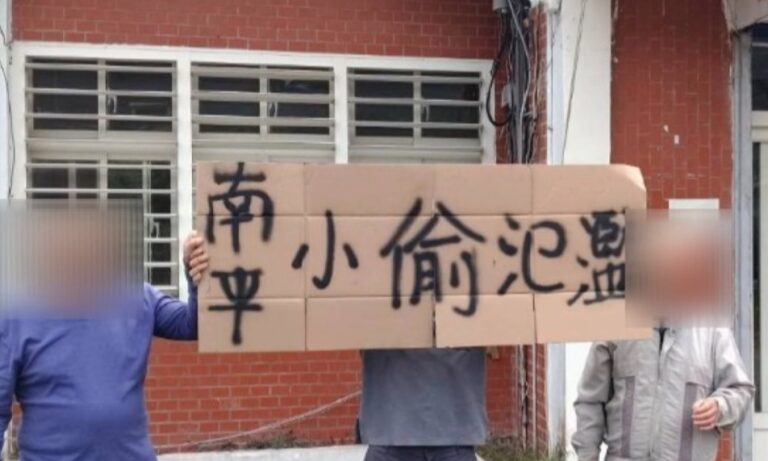 南平
小偷氾濫